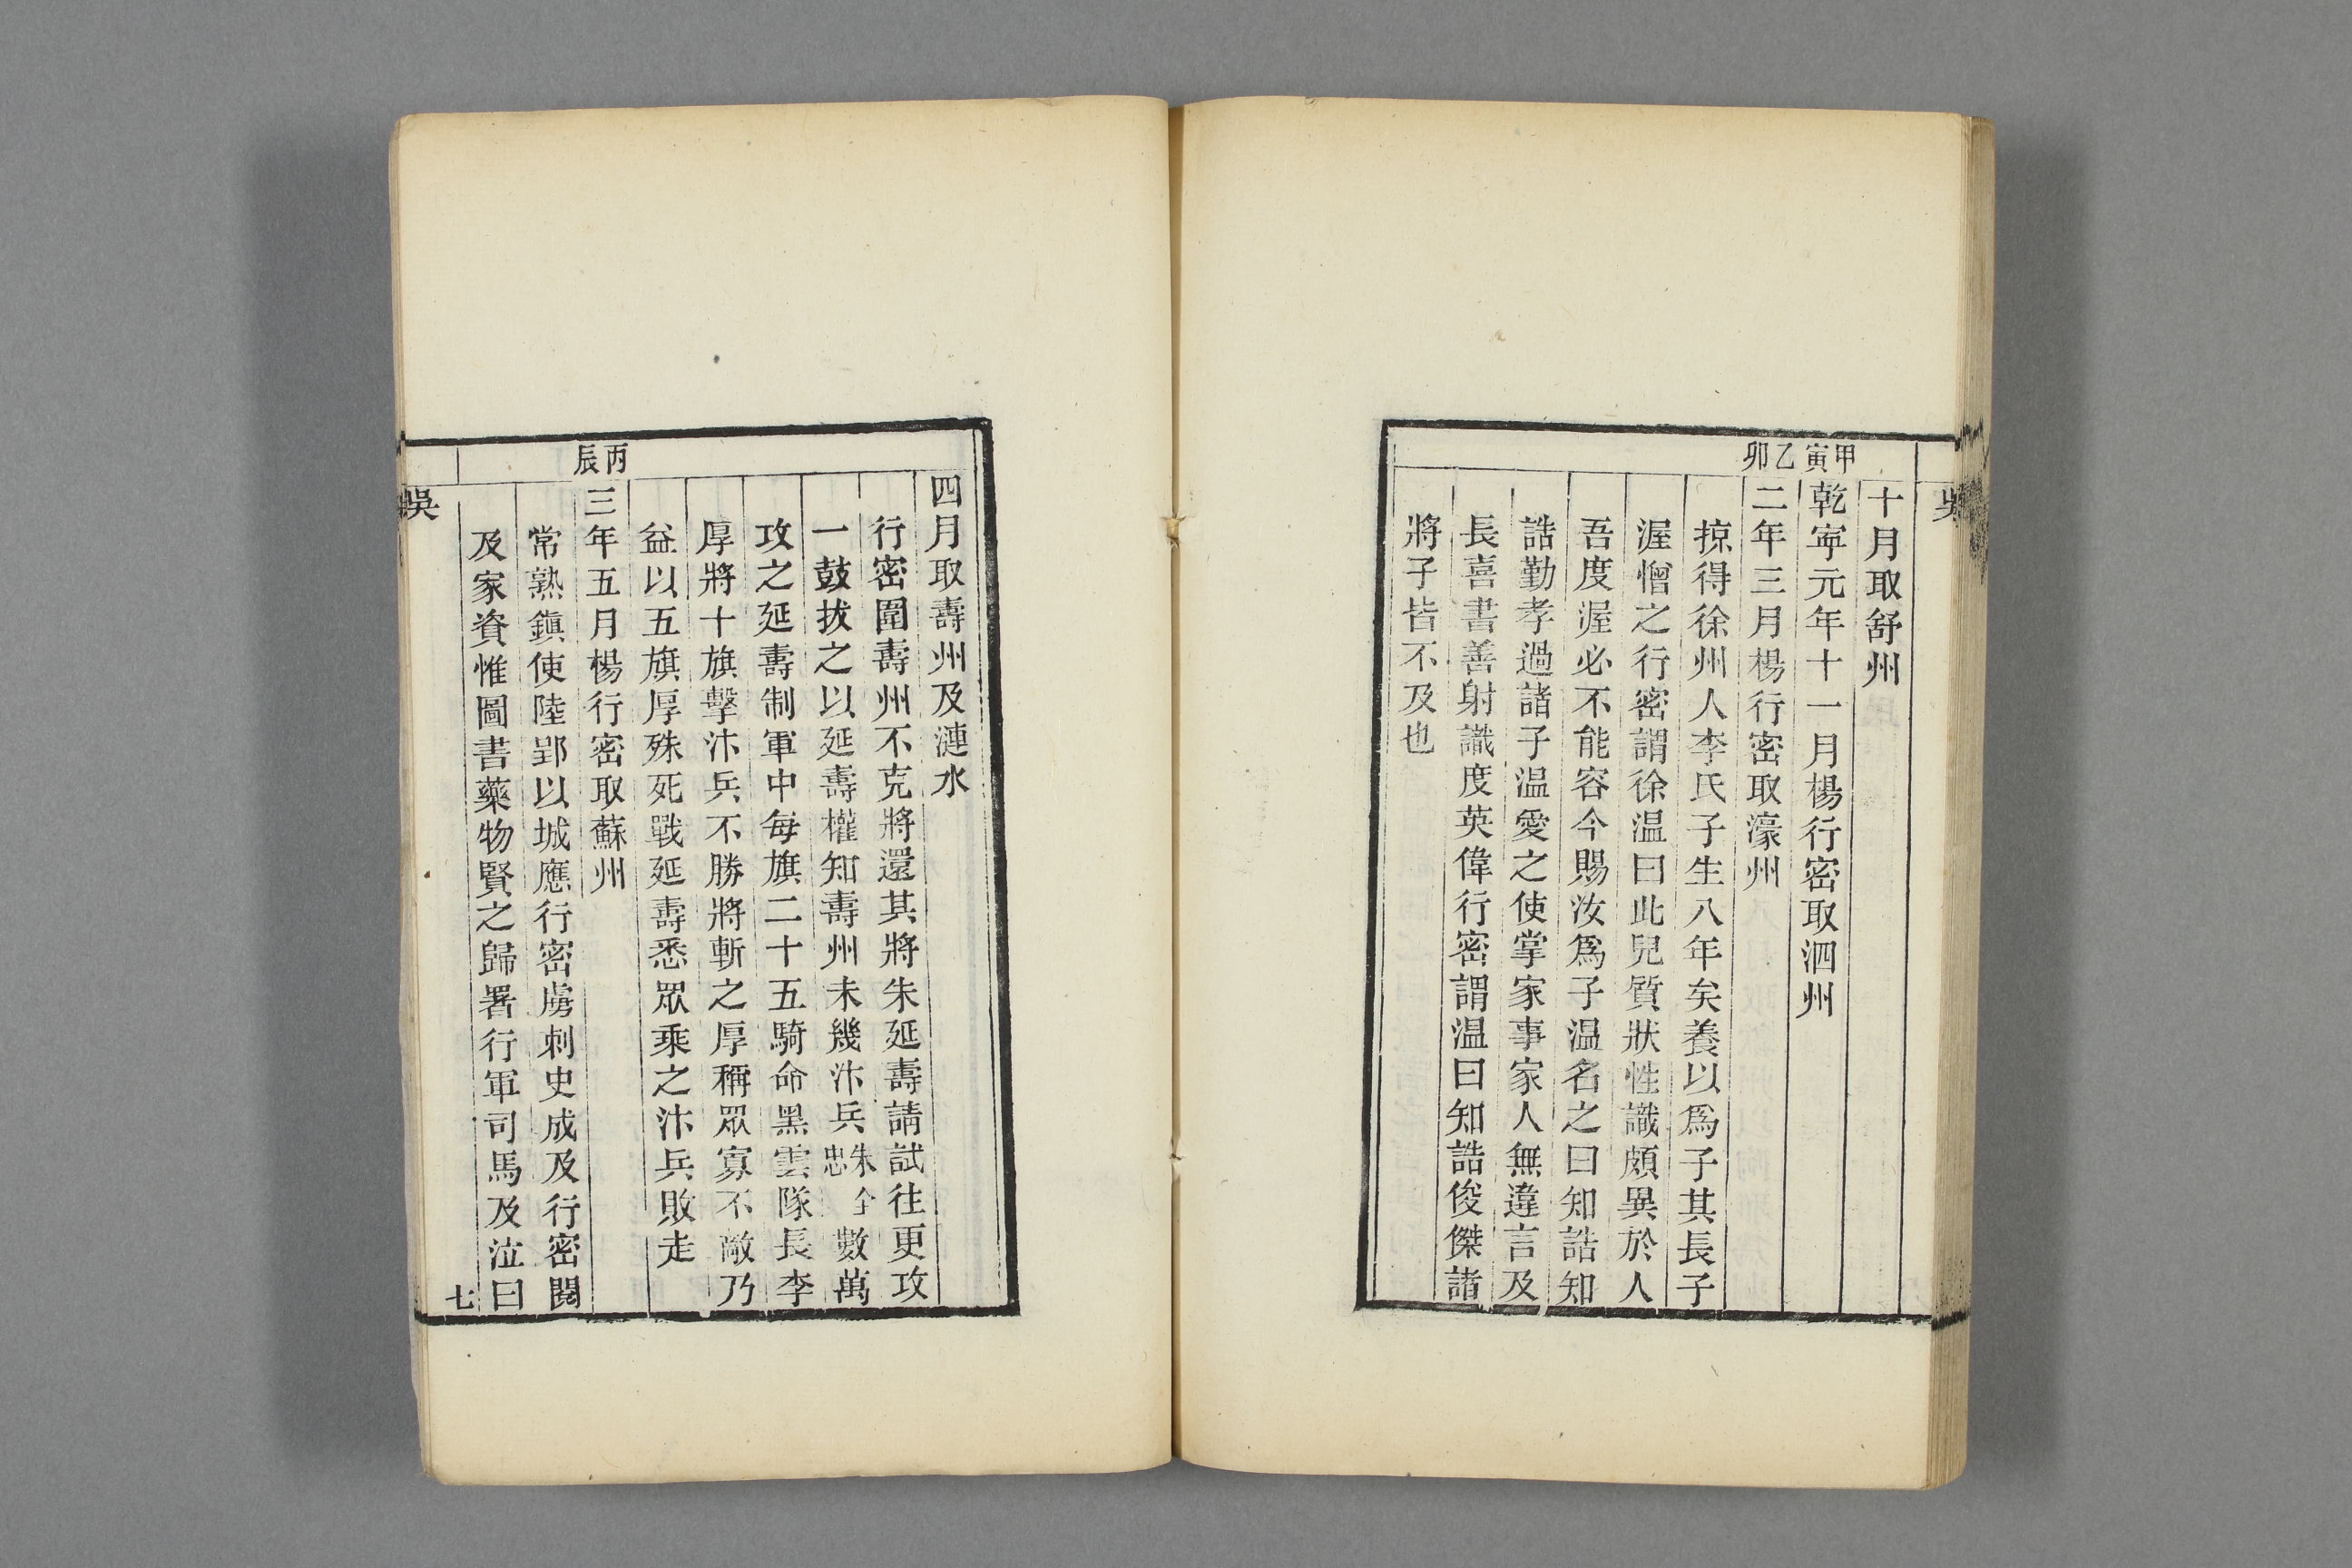 吳
十月取舒州
甲寅
乾寧元年十一月楊行密取泗州
乙卯
二年三月楊行密取濠州
掠得徐州人李氏子生八年矣養以爲子其長子
渥憎之行密謂徐温曰此兒質狀性識頗異於人
吾度渥必不能容今賜汝爲子温名之曰知誥知
誥勤孝過諸子温愛之使掌家事家人無違言及
長喜書善射識度英偉行密謂温曰知誥俊傑諸
將子皆不及也
四月取壽州及漣水
行密圍壽州不克將還其將朱延壽請試往更攻
一鼓拔之以延壽權知壽州未幾汴兵朱全忠數萬
攻之延壽制軍中每旗二十五騎命黑雲隊長李
厚將十旗擊汴兵不勝將斬之厚稱眾寡不敵乃
益以五旗厚殊死戰延壽悉眾乘之汴兵敗走
丙辰
三年五月楊行密取蘇州
常熟鎮使陸郢以城應行密虜刺史成及行密閱
及家資惟圖書藥物賢之歸署行軍司馬及泣曰
吳
七